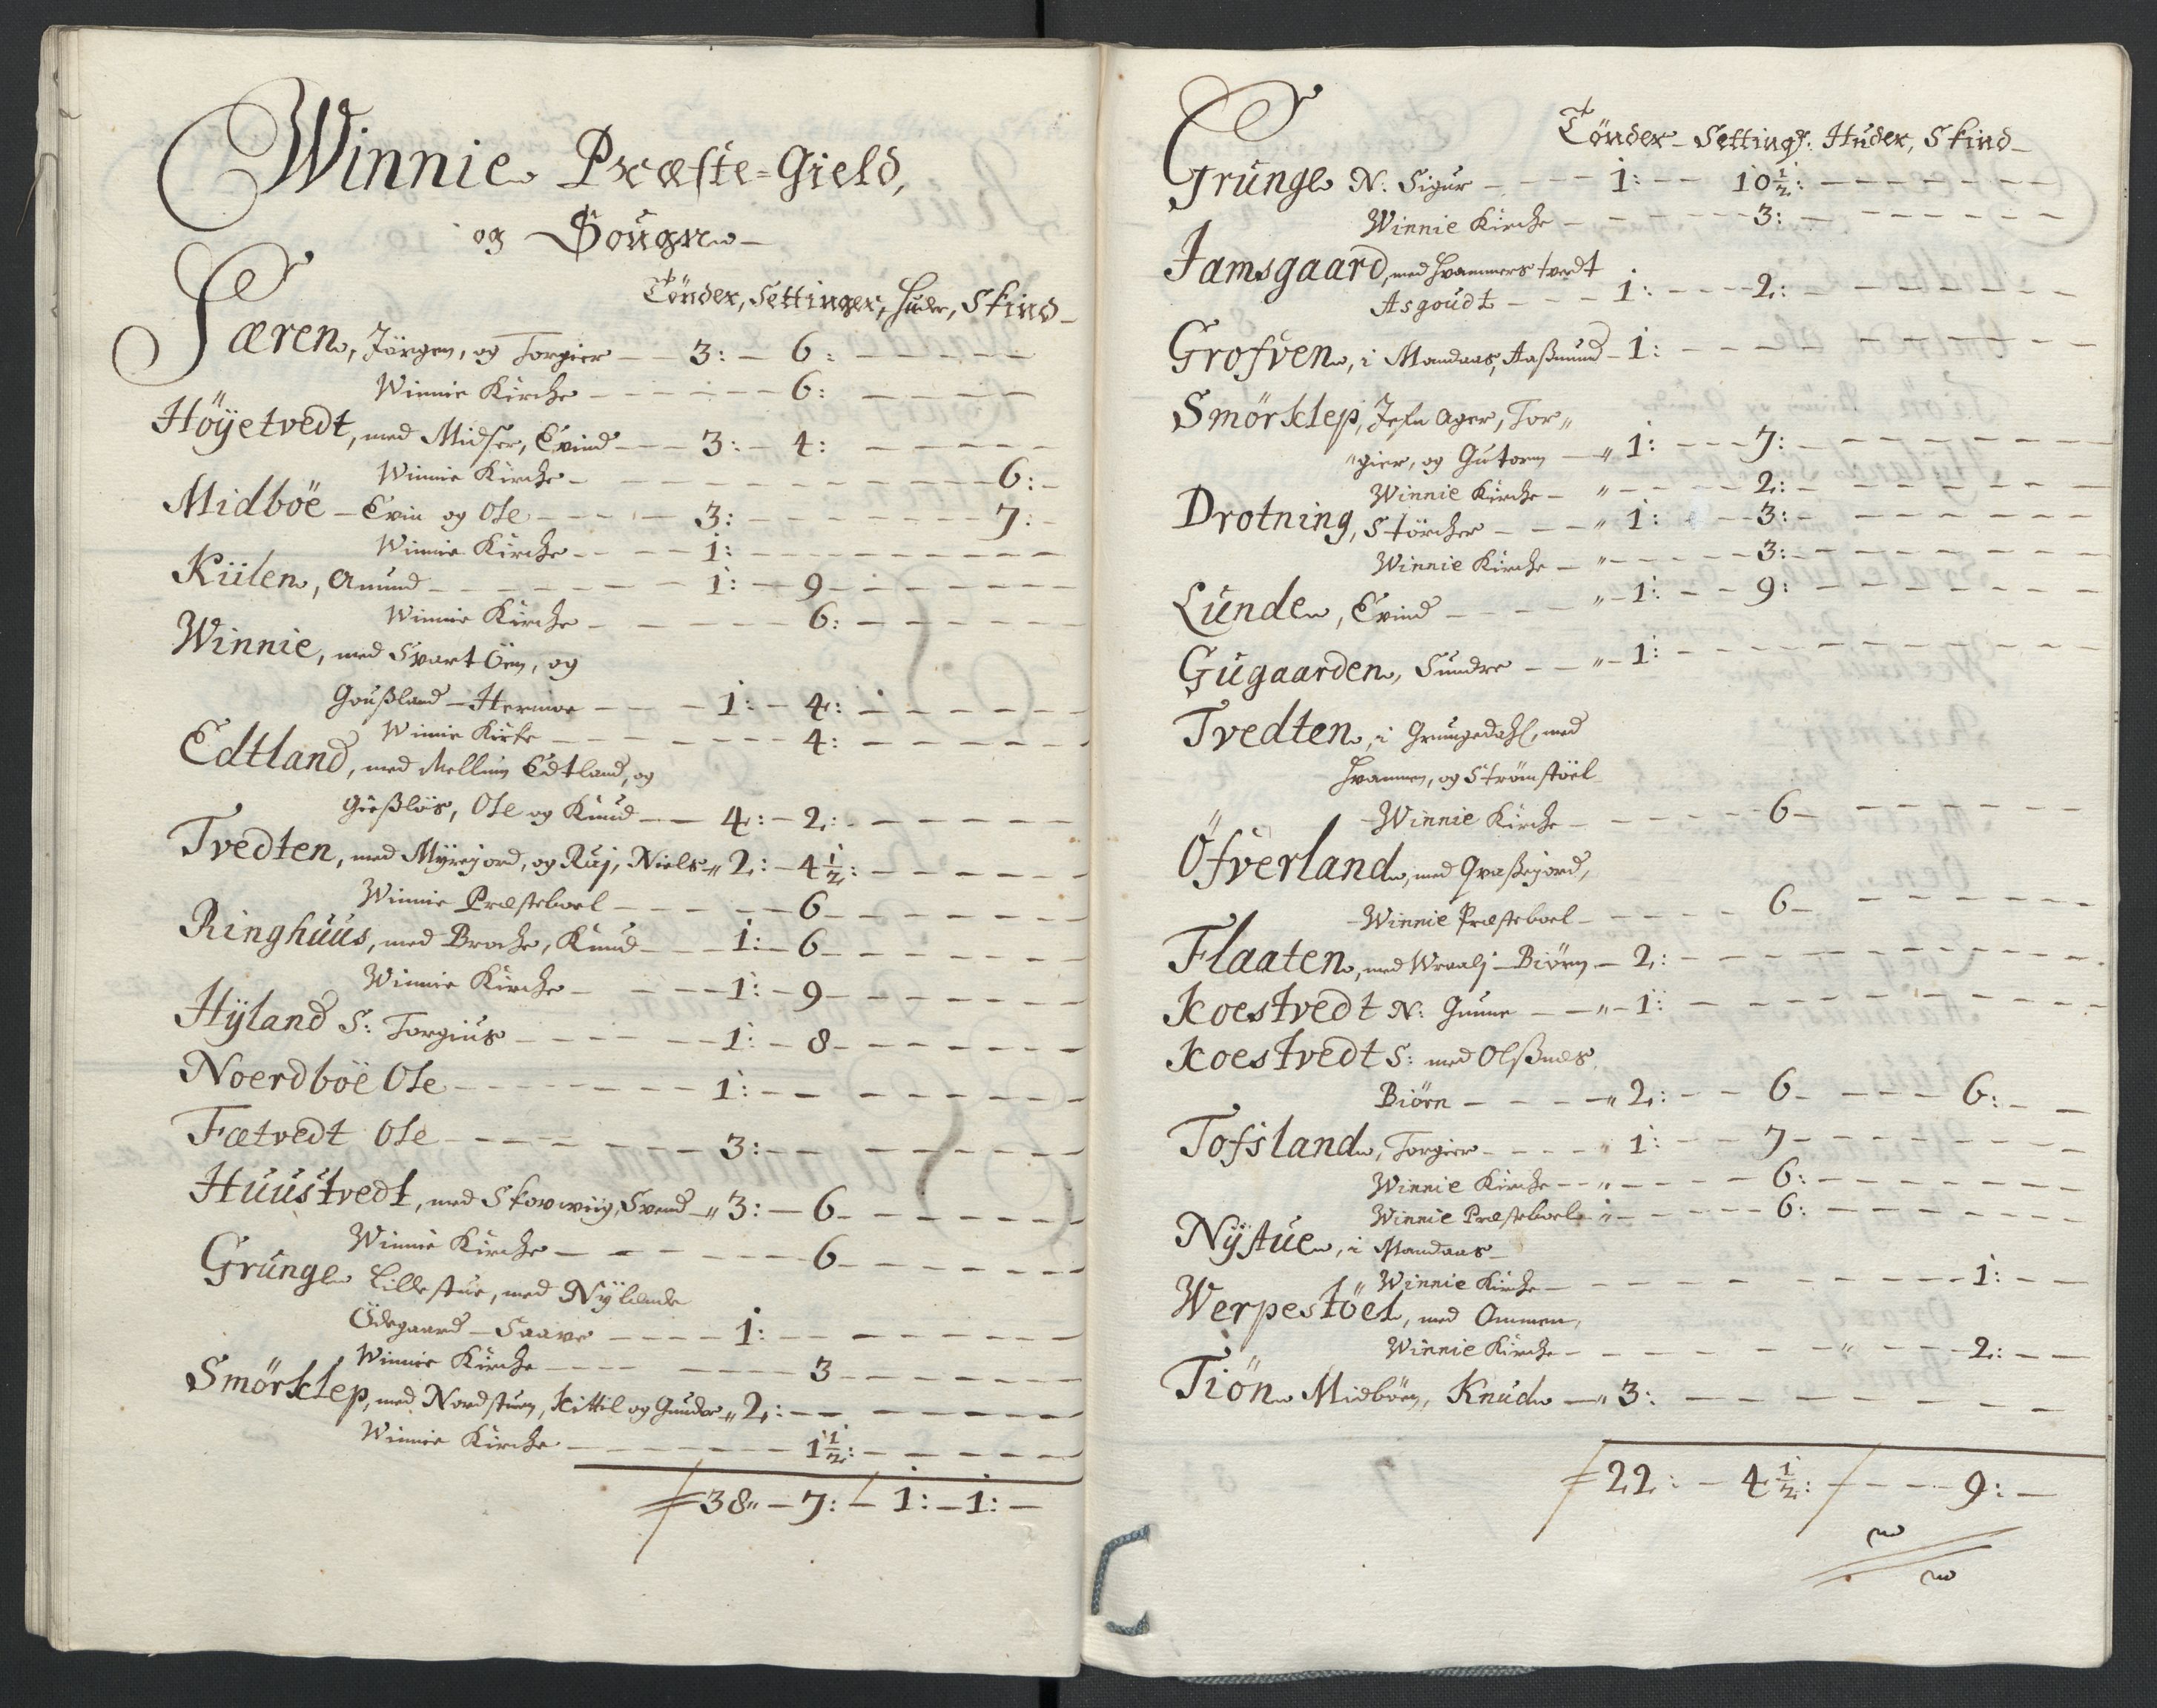 Winnie Præste-Gield,
og Sougne
Tönder, Settinger, Huder, Skind
Særen, Jörgen, og Torgier 3: 6:
Winnie Kirche 6:
Höÿetvedt, med Midser, Evind 3: 4:
Winnie Kirche 6:
Midböe - Evin og Ole 3: 7:
Winnie Kirche 1:
Kiilen, Amund 1: 9
Winnie Kirche 6:
Winnie, med Svart Öen, og
Goußland - Hermoe 1: 4:
Winnie Kirke 4:
Edtland, med Mellum Edtland, og
Gießlös, Ole og Knud 4: 2:
Tvedten, med Mÿrejord, og Ruj, Niels 2: 4½:
Winnie Præsteboel 6
Ringhuus, med Broche, Knud 1: 6
Winnie Kirche 1: 9
Hÿland S: Torgius 1: 8
Noerdböe Ole 1:
Fætvedt Ole 3:
Huustvedt, med Skovwiig, Svend 3: 6
Winnie Kirche 6
Grunge Lillestue, med Nÿlende
Ödegaard - Saave 1:
Winnie Kirche 3
Smörklep, med Nordstuen, Kittil og Gunder 2:
Winnie Kirche 1½:
38 - 7: 1: 1:
Tönder Setting: Huder, Skind
Grunge N. Sigur 1: 10½:
Winnie Kirche 3:
Jamsgaard, med Hvammers tvedt
Asgoudt 1: 2:
Grofven, i Mandaas, Aaßmund 1:
Smörklep, Jesn Ager, Tor"
"gier, og Gutorm 1: 7:
Winnie Kirche 2:
Drotning, Störcher 1: 3:
Winnie Kirche 3:
Lunde, Evind 1: 9:
Gugaarden, Sundre 1:
Tvedten, i Grungedahl, med
Hvammen, og Strömstöel
Winnie Kirche 6
Öfverland, med Graßejord,
Winnie Præsteboel 6
Flaaten, med Wraalj - Biörn 2:
Koestvedt N: Gunne 1:
Koestvedt S: med Olßnes
Biörn 2: 6 6:
Tofsland, Torgier 1: 7
Winnie Kirche 6:
Winnie Præsteboel 6:
Nÿstue, i Mandaas
Winnie Kirche 1:
Werpestöel, med Ommen,
Winnie Kirche 2:
Tiön Midböen, Knud 3:
22: 4½: 9: